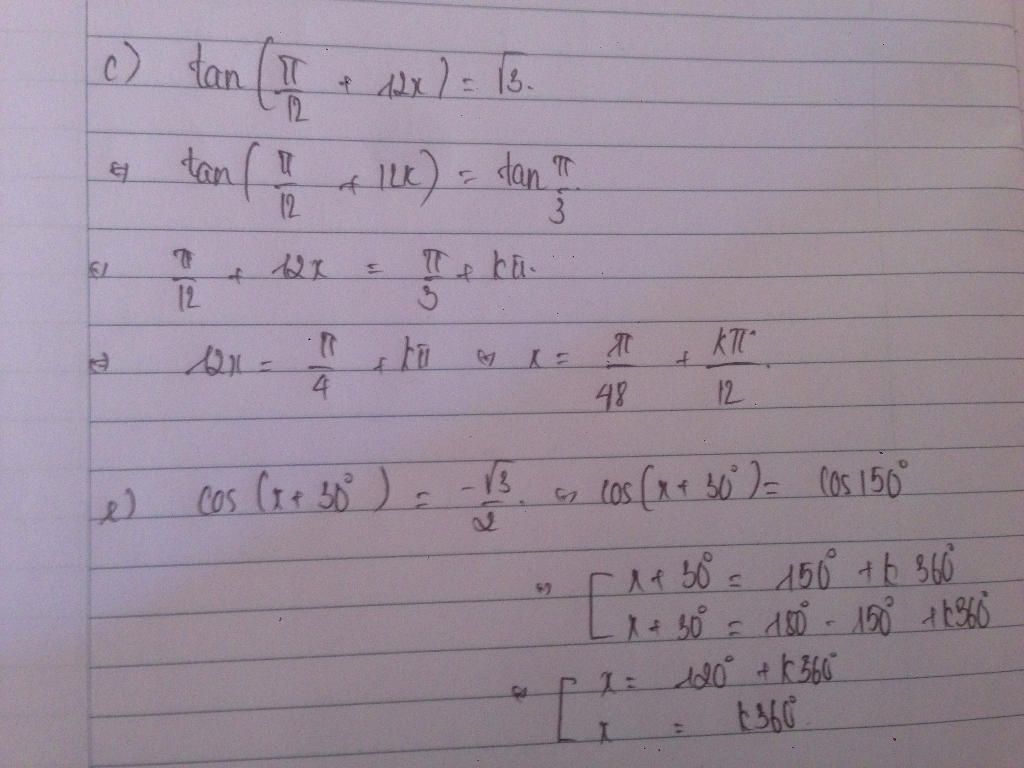 c) tan(π/12 + 12x) = √3.
⇔ tan(π/12 + 12x) = tan π/3
⇔ π/12 + 12x = π/3 + kπ.
⇔ 12x = π/4 + kπ ⇔ x = π/48 + kπ/12.
e) cos(x + 30°) = -√3/2. ⇔ cos(x + 30°) = cos 150°
⇔ [ x + 30° = 150° + k 360°
x + 30° = 180° - 150° + k360°
⇔ [ x = 120° + k360°
x = k360°